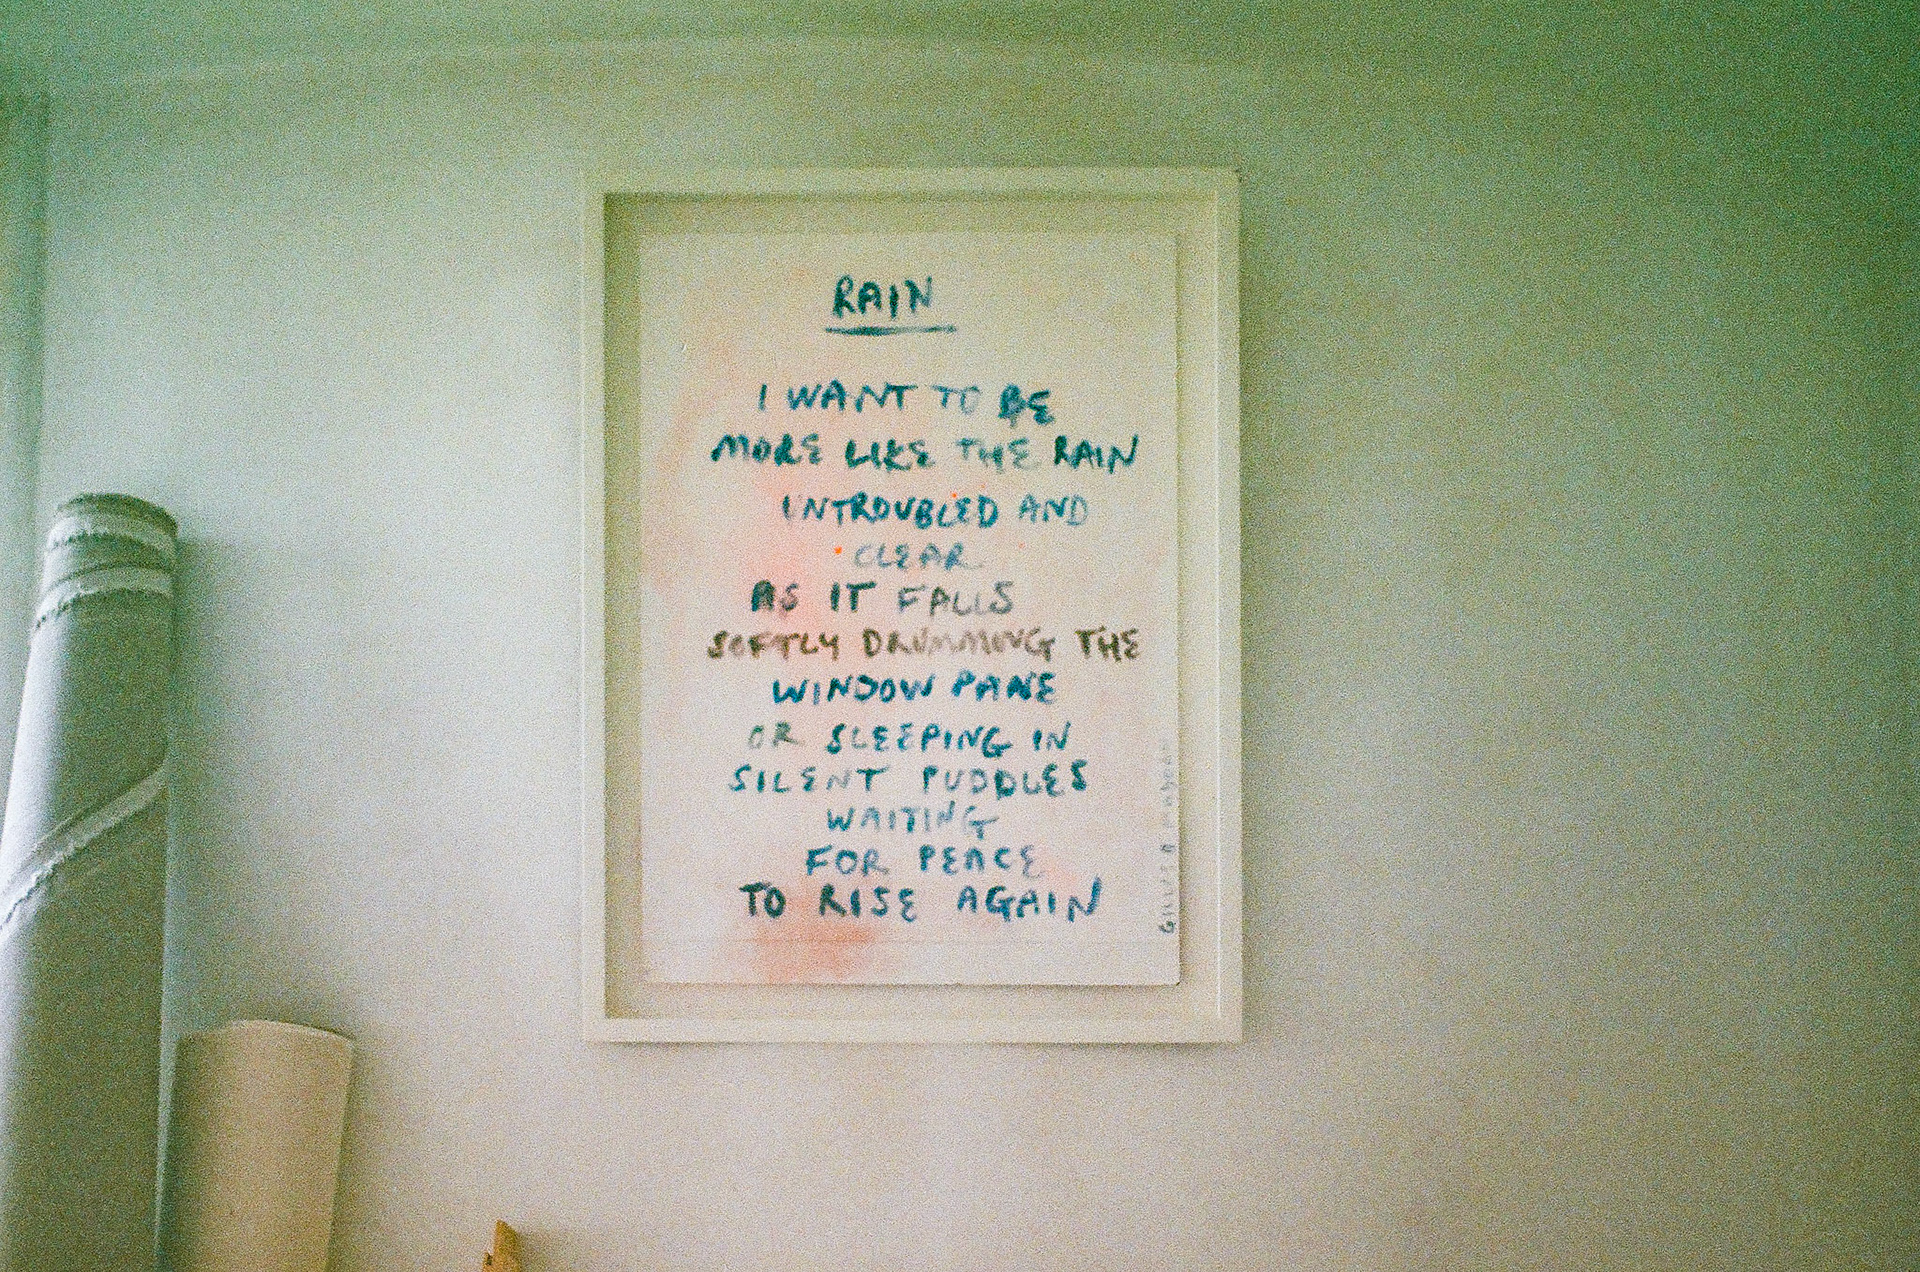 RAIN
I WANT TO BE
MORE LIKE THE RAIN
INTROUBLED AND
CLEAR
AS IT FALLS
SOFTLY DRUMMING THE
WINDOW PANE
OR SLEEPING IN
SILENT PUDDLES
WAITING
FOR PEACE
TO RISE AGAIN